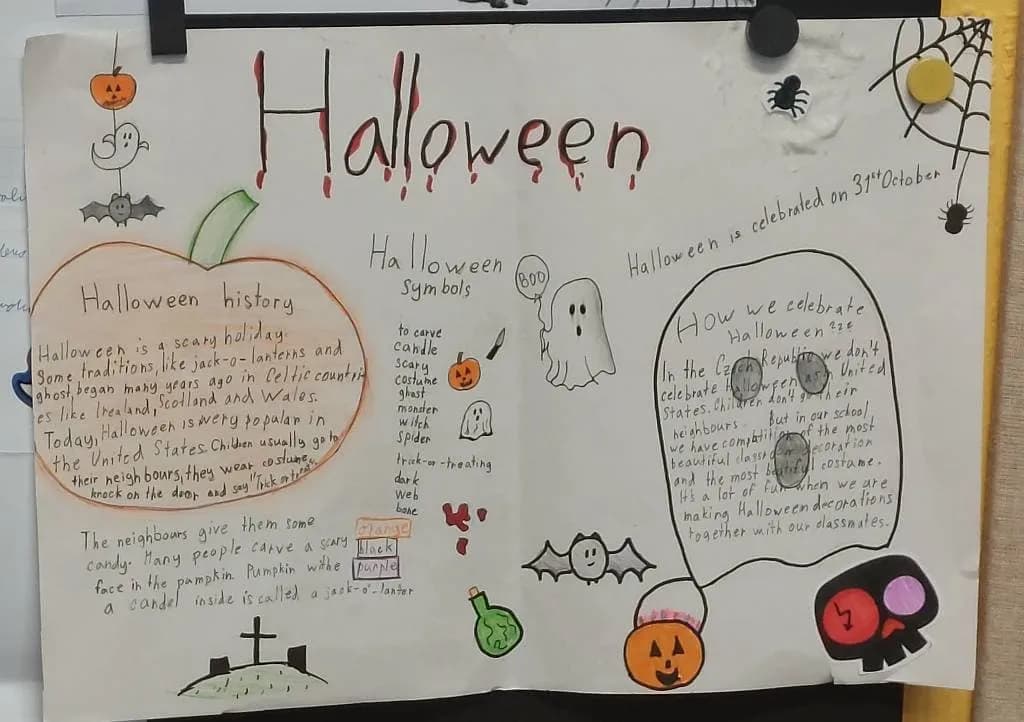 Halloween
Halloween is celebrated on 31st October
Halloween history
Halloween is a scary holiday.
Some traditions, like jack-o-lanterns and
ghost, began many years ago in Celtic countri-
es like Irealand, Scotland and Wales.
Today, Halloween is wery popular in
the United States. Children usually go to
their neighbours, they wear costume,
knock on the door and say "Trick or treat"
The neighbours give them some
candy. Many people carve a scary
face in the pampkin. Pumpkin withe
a candel inside is called a jack-o'-lanter
Halloween
Symbols
to carve
candle
scary
costume
ghast
monster
witch
spider
trick-or-treating
dark
web
bone
orange
black
purple
BOO
How we celebrate
Halloween ???
In the Czech Republic we don't
celebrate Halloween as United
States. Children don't go their
neighbours. But in our school,
we have compatition of the most
beautiful classroom decoration
and the most beautiful costume.
It's a lot of fun when we are
making Halloween decorations
together with our classmates.